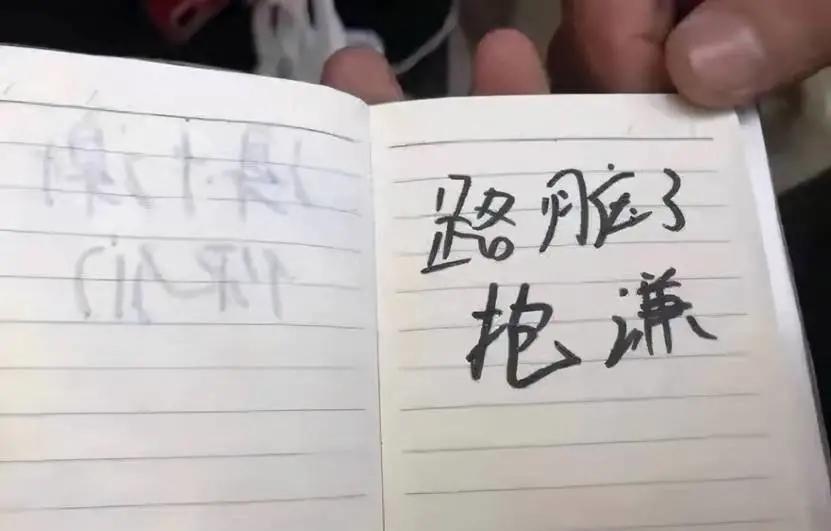 路脏了
抱谦